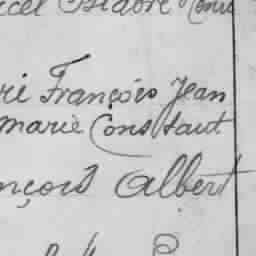 Isidore Henri
François Jean
marie Constant
nçois Albert